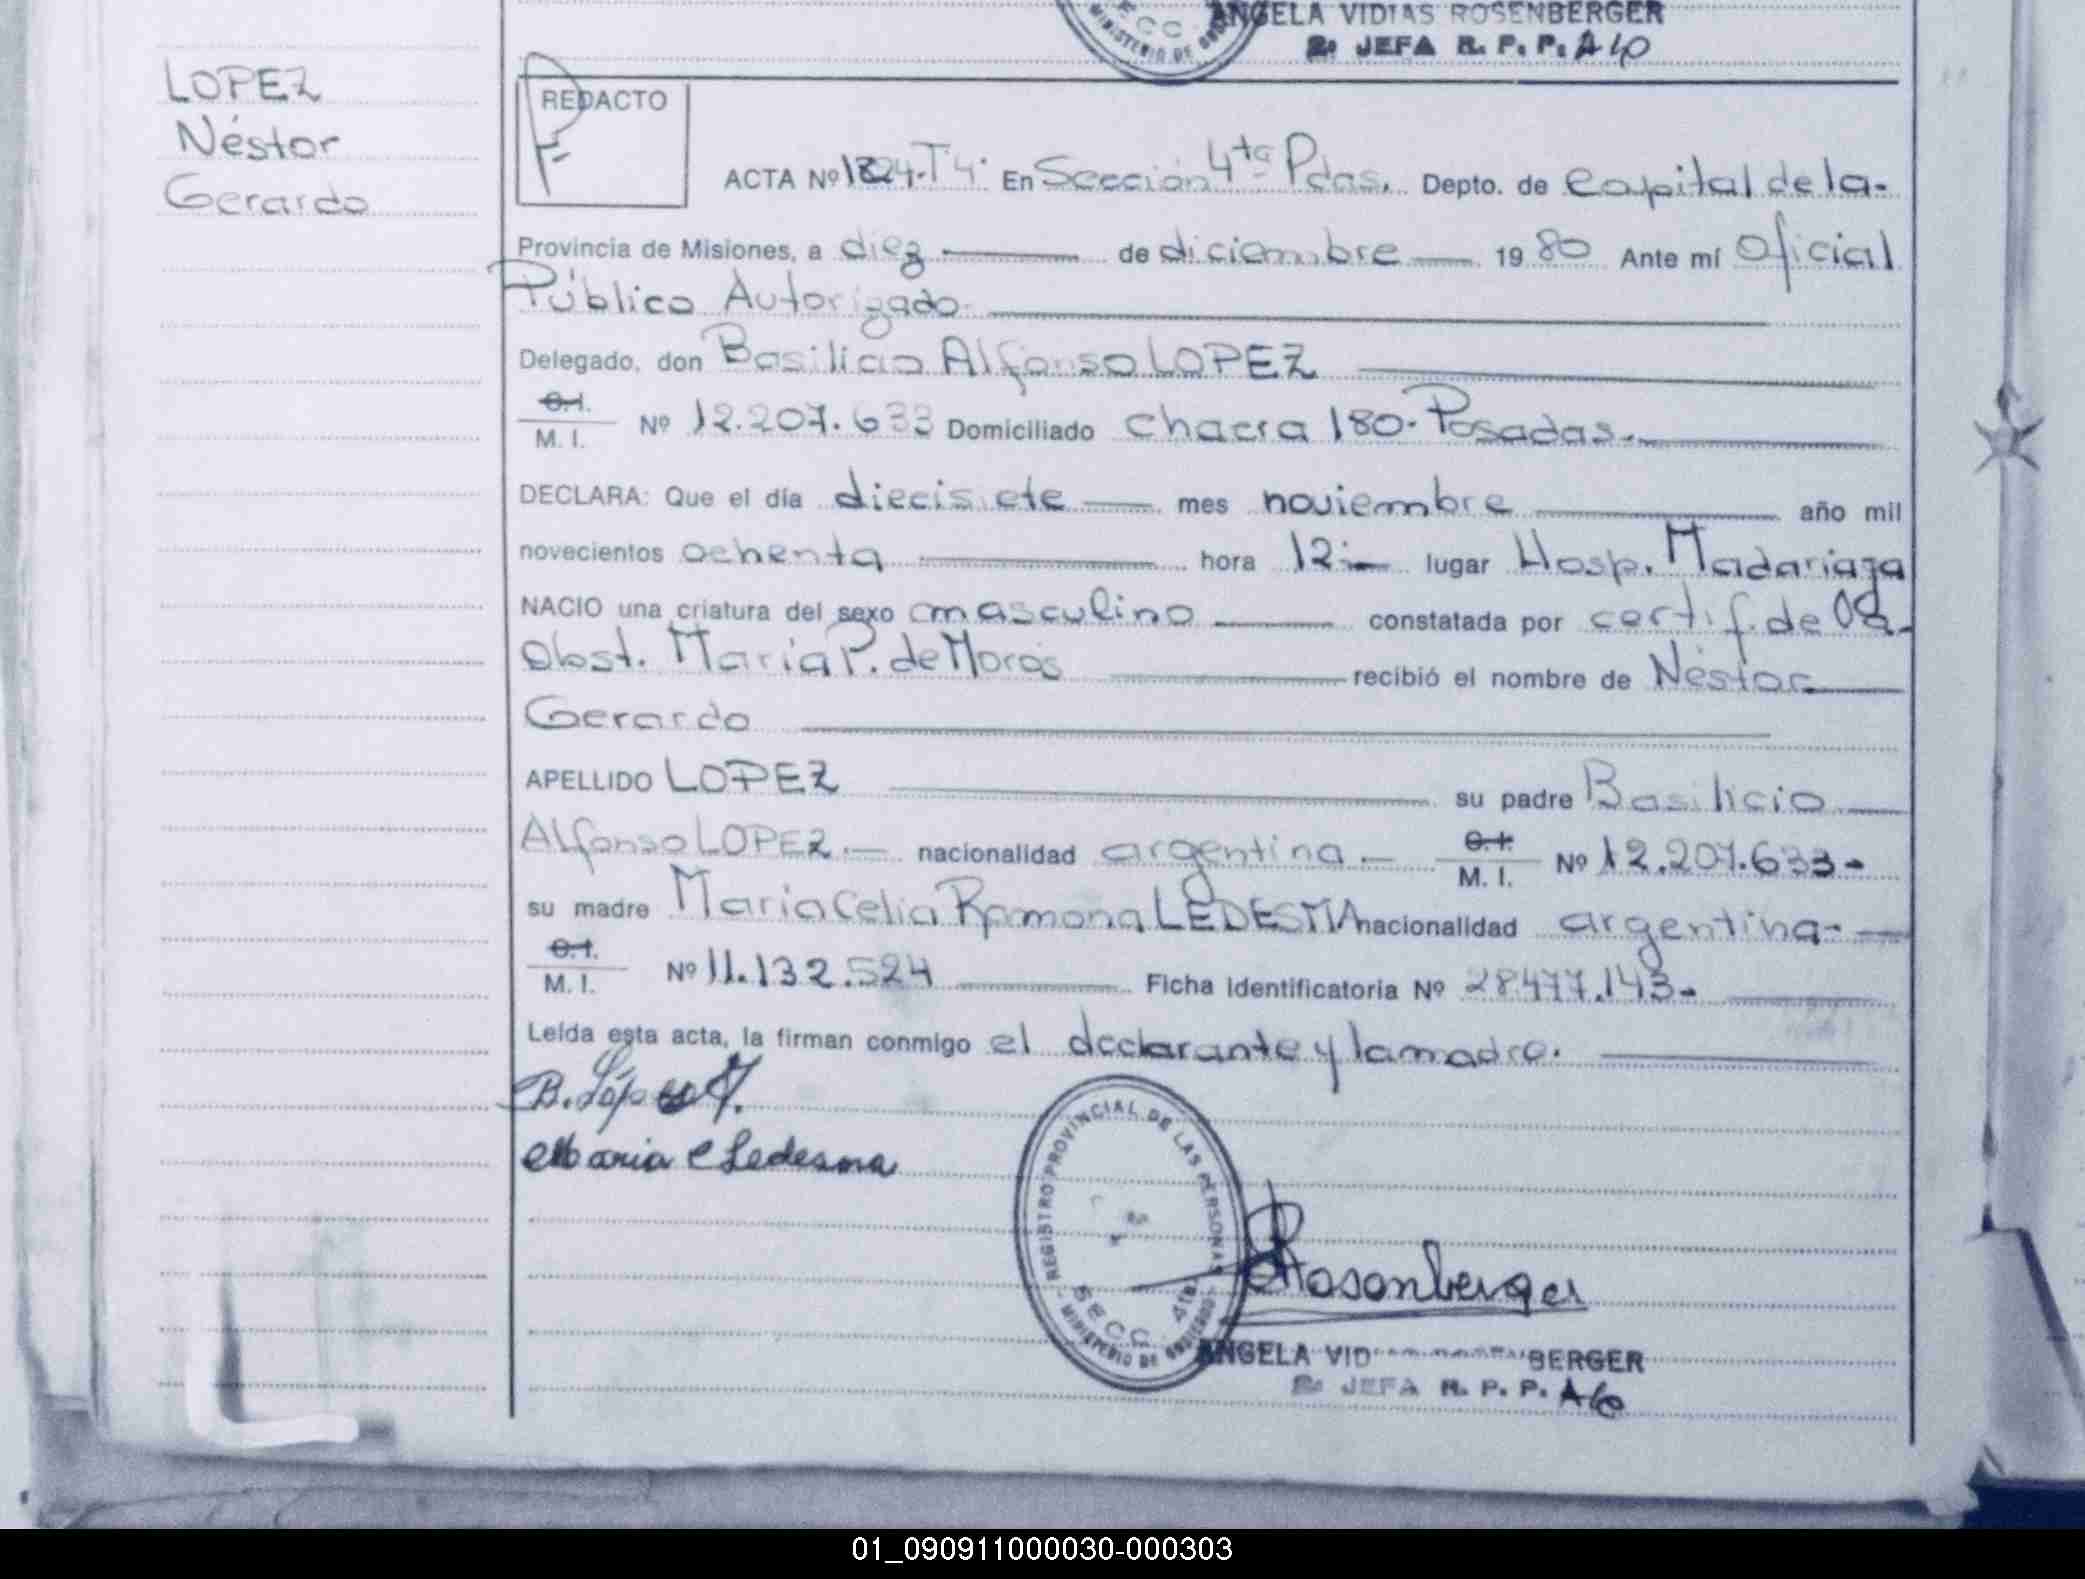 ANGELA VIDIAS ROSENBERGER
2a JEFA R. P. P. A/C
MINISTERIO DE GOBIERNO
LOPEZ
Néstor
Gerardo
REDACTO
ACTA Nº 1824-Tº4º En Sección 4ta Pdas. Depto. de Capital de la
Provincia de Misiones, a diez de diciembre 1980 Ante mí Oficial
Público Autorizado
Delegado, don Basilicio Alfonso LOPEZ
C.I.
M. I. Nº 12.207.633 Domiciliado Chacra 180-Posadas.
DECLARA: Que el día diecisiete mes noviembre año mil
novecientos ochenta hora 12:- lugar Hosp. Madariaga
NACIO una criatura del sexo masculino constatada por certif. de la
Obst. María P. de Moros recibió el nombre de Néstor
Gerardo
APELLIDO LOPEZ su padre Basilicio
Alfonso LOPEZ.- nacionalidad argentina.- C.I. M. I. Nº 12.207.633-
su madre María Celia Ramona LEDESMA nacionalidad argentina-
C.I.
M. I. Nº 11.132.524 Ficha identificatoria Nº 28477.143-
Leída esta acta, la firman conmigo el declarante y la madre.
B. López A.
Maria C Ledesma
REGISTRO PROVINCIAL DE LAS PERSONAS
SECC. 4TA.
MINISTERIO DE GOBIERNO
Rosenberger
ANGELA VID BERGER
2a JEFA R. P. P. A/C
01_090911000030-000303